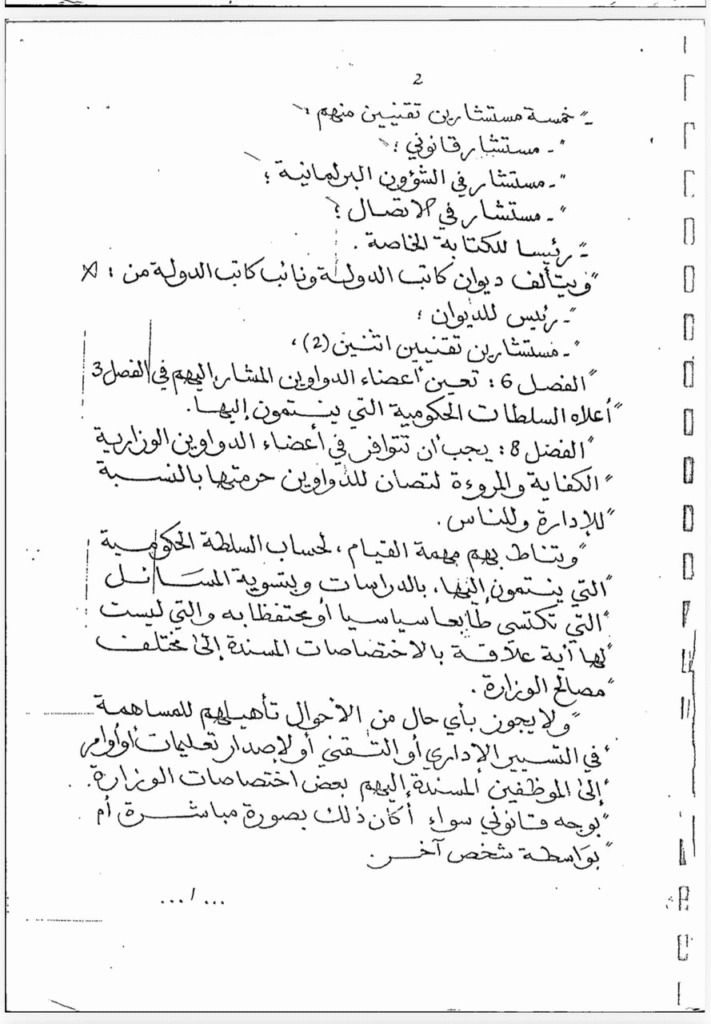 2
"- خمسة مستشارين تقنيين منهم :
"- مستشار قانوني ؛
"- مستشار في الشؤون البرلمانية ؛
"- مستشار في الاتصال ؛
"- رئيسا للكتابة الخاصة .
"ويتألف ديوان كاتب الدولة ونائب كاتب الدولة من :
"- رئيس للديوان ؛
"- مستشارين تقنيين اثنين (2) ،
"الفصل 6 : تعين أعضاء الدواوين المشار إليهم في الفصل 3
"أعلاه السلطات الحكومية التي ينتمون إليها .
"الفصل 8 : يجب أن تتوافر في أعضاء الدواوين الوزارية
"الكفاية والمروءة لتصان للدواوين حرمتها بالنسبة
"للإدارة وللناس .
"وتناط بهم مهمة القيام ، لحساب السلطة الحكومية
"التي ينتمون إليها ، بالدراسات وبتسوية المسائل
"التي تكتسي طابعا سياسيا أو محتفظا به والتي ليست
"لها أية علاقة بالاختصاصات المسندة إلى مختلف
"مصالح الوزارة .
"ولا يجوز بأي حال من الأحوال تأهيلهم للمساهمة
"في التسيير الإداري أو التقني أو لإصدار تعليمات أو أوامر
"إلى الموظفين المسندة إليهم بعض اختصاصات الوزارة
"بوجه قانوني سواء أكان ذلك بصورة مباشرة أم
"بواسطة شخص آخر.
.../...